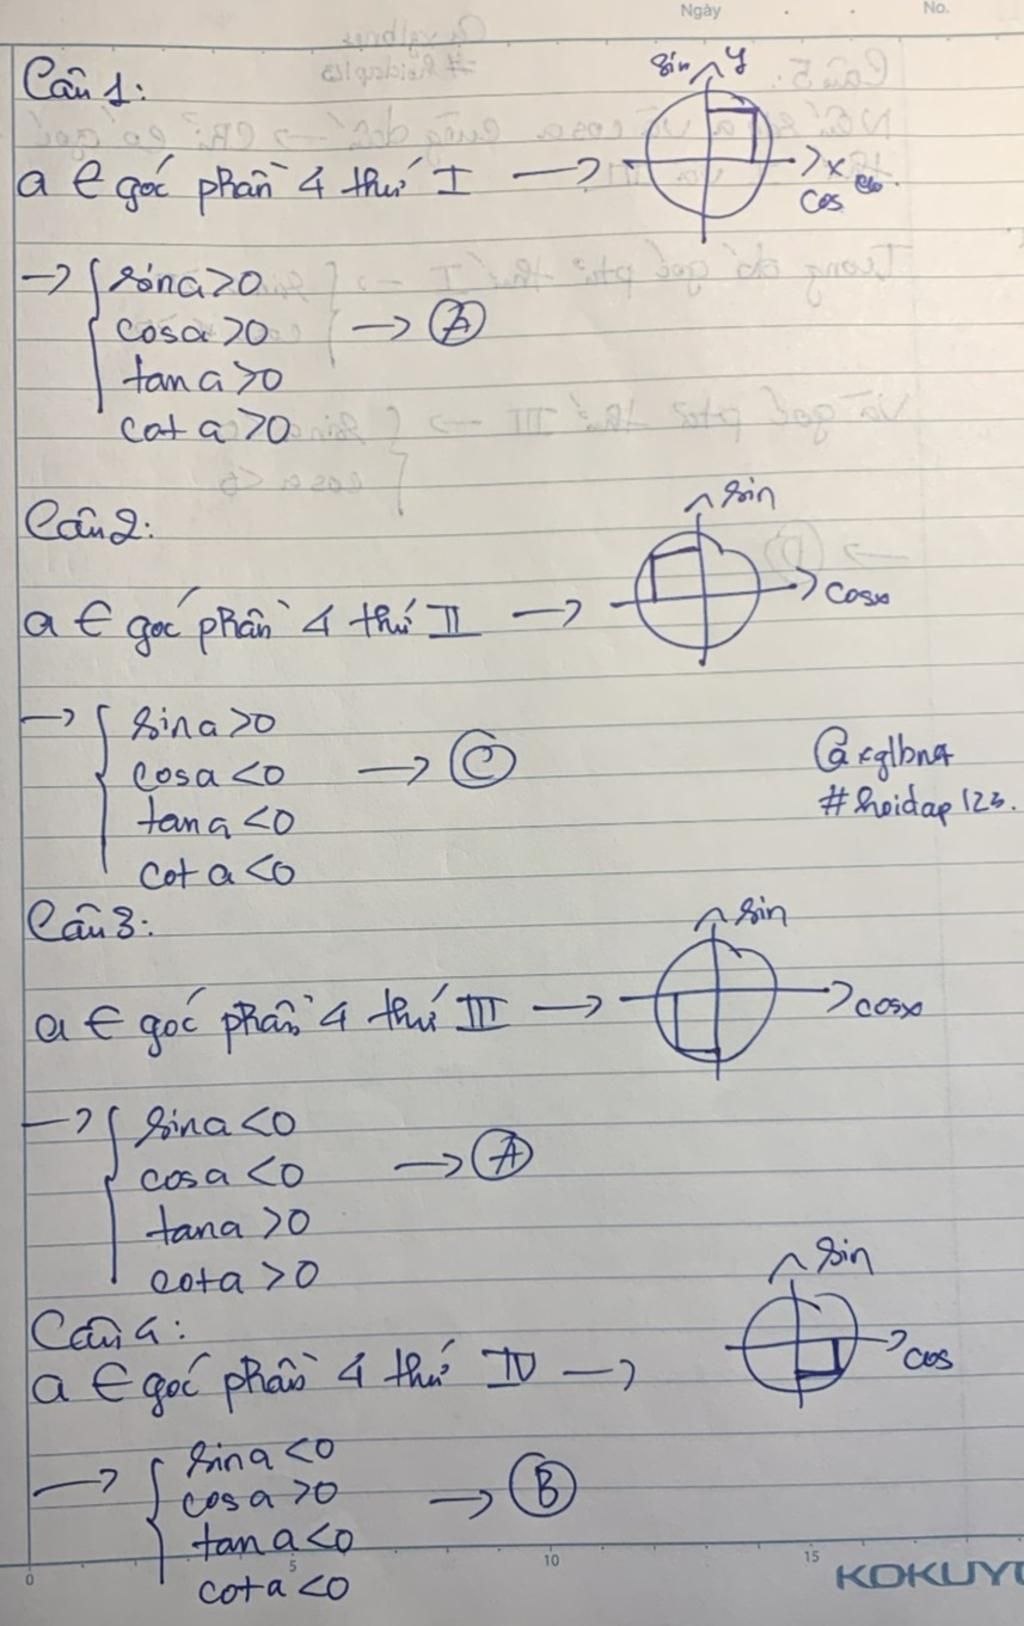 Ngày
No.
Câu 1:
sin y
a ∈ góc phần 4 thứ I → x
cos
→ { sina>0
cosa>0 → A
tan a>0
cot a>0
Câu 2:
sin
a ∈ góc phần 4 thứ II → cosx
→ { sina>0
cosa<0 → C
tana<0
cot a<0
@xglbna
#hoidap123.
Câu 3:
sin
a ∈ góc phần 4 thứ III → cosx
→ { sina<0
cosa<0 → A
tana>0
cota>0
Câu 4:
sin
a ∈ góc phần 4 thứ IV → cos
→ { sina<0
cosa>0 → B
tana<0
cota<0
0 5 10 15
KOKUYO